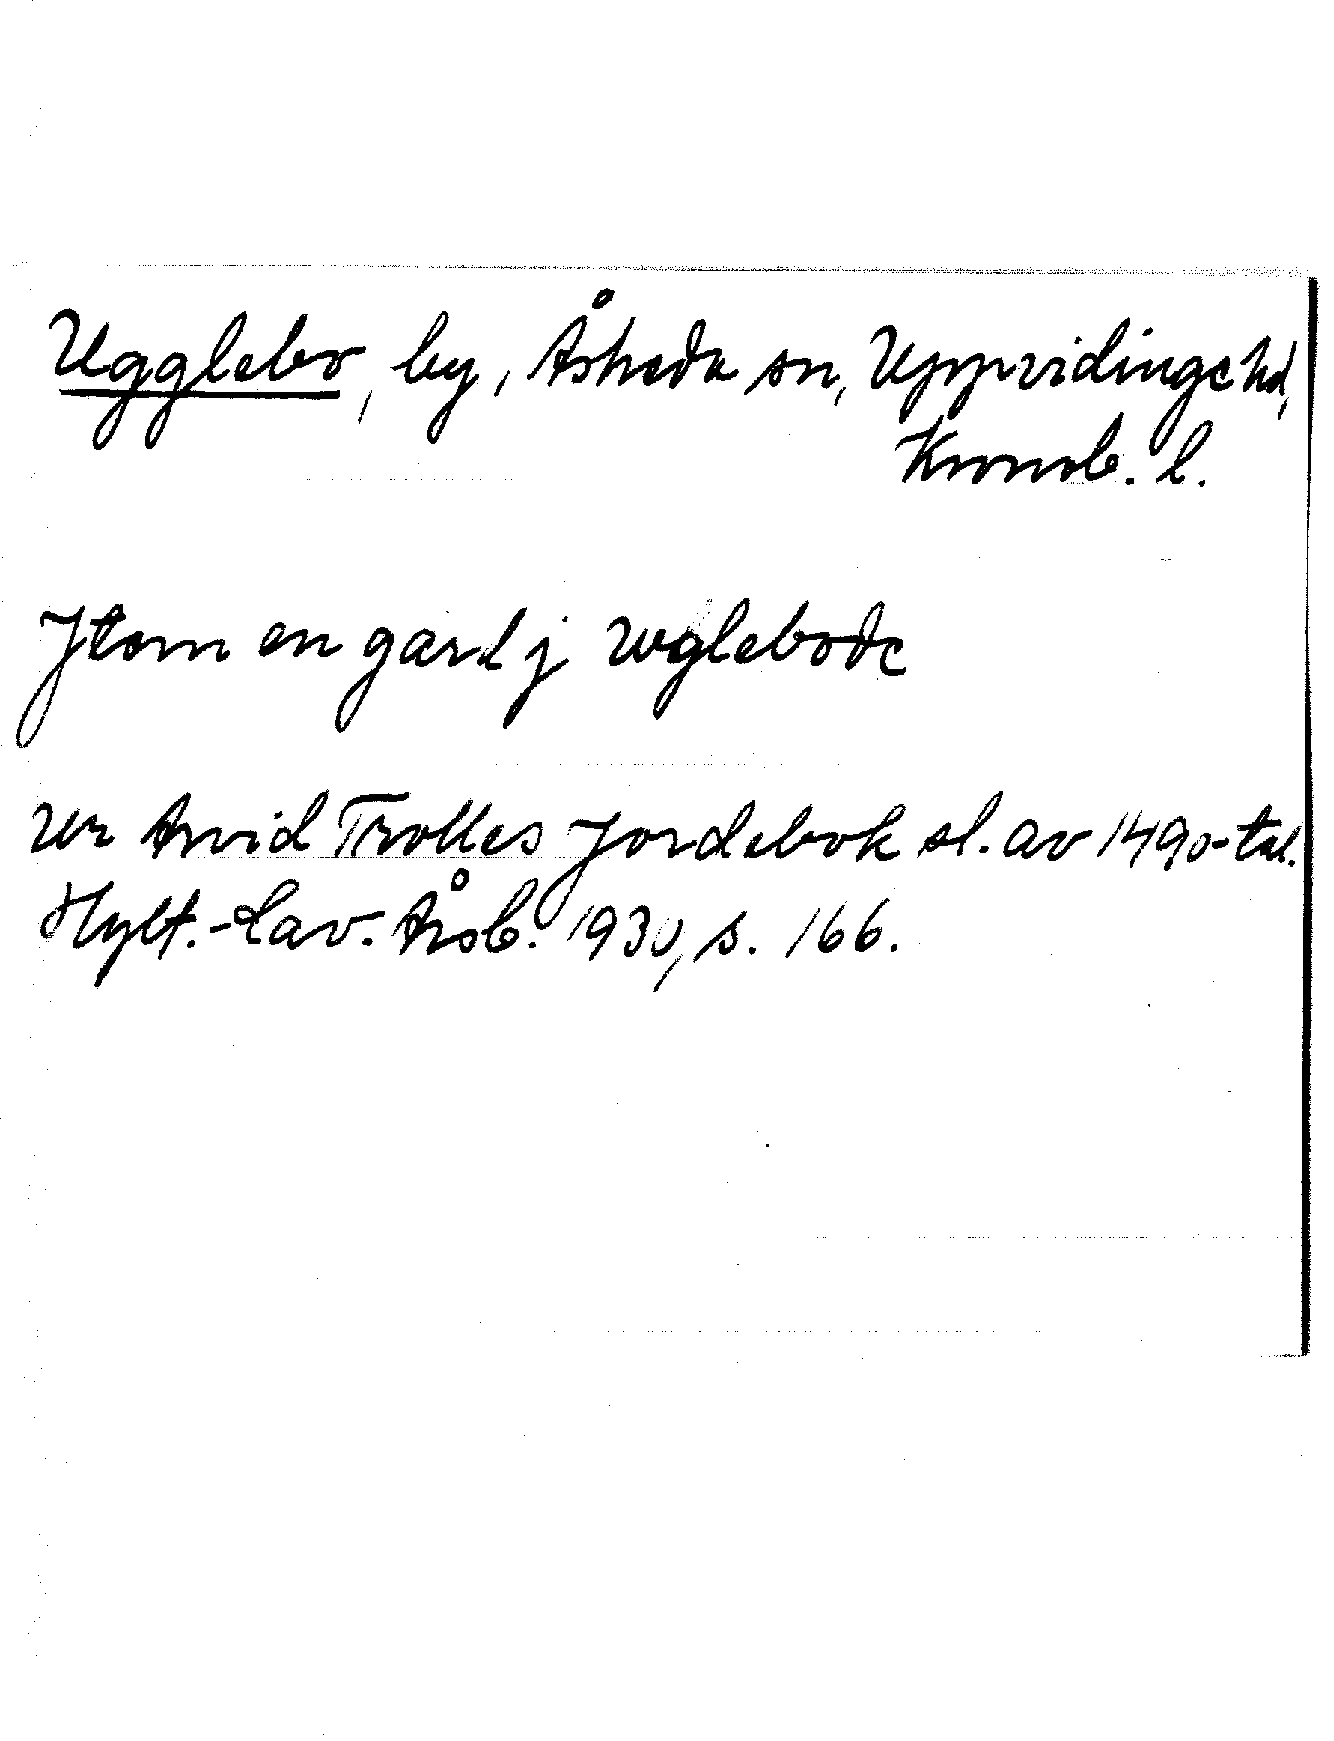 Ugglebo, by, Åsheda sn, Uppvidinge hd,
Kronob. l.
Jtem en gard j wglebode
Ur Arvid Trolles Jordebok sl. av 1490-tal.
Hylt.-Cav. Årsb. 1930, s. 166.